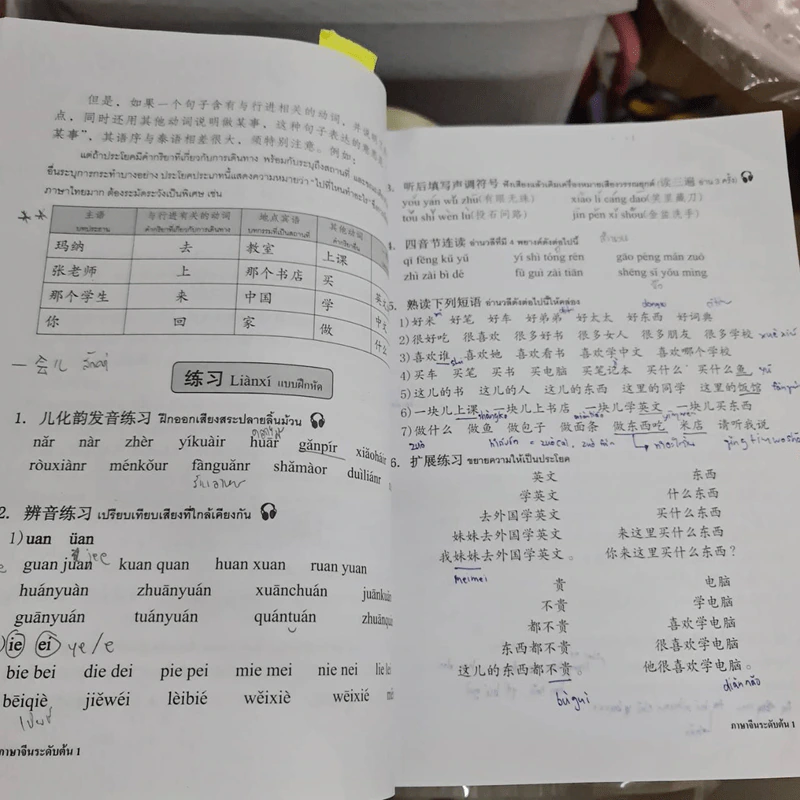 但是，如果一个句子含有与行进相关的动词，并说明
点，同时还用其他动词说明做某事，这种句子表达的意思
某事”，其语序与泰语相差很大，须特别注意。例如：
แต่ถ้าประโยคมีคำกริยาที่เกี่ยวกับการเดินทาง พร้อมกับระบุถึงสถานที่ และ
อื่นระบุการกระทำบางอย่าง ประโยคประเภทนี้แสดงความหมายว่า "ไปที่ไหนทำอะไร"
ภาษาไทยมาก ต้องระมัดระวังเป็นพิเศษ เช่น
主语 与行进有关的动词 地点宾语 其他动词
บทประธาน คำกริยาที่เกี่ยวกับการเดินทาง บทกรรมที่เป็นสถานที่ คำกริยาอื่น
玛纳 去 教室 上课
张老师 上 那个书店 买
那个学生 来 中国 学
你 回 家 做
一会儿
练习 Liànxí แบบฝึกหัด
1. 儿化韵发音练习 ฝึกออกเสียงสระปลายลิ้นม้วน
nǎr nàr zhèr yíkuàir huār gānpír xiǎohái
ròuxiànr ménkǒur fànguǎnr shāmàor duìliánr
2. 辨音练习 เปรียบเทียบเสียงที่ใกล้เคียงกัน
1) uan üan
guan juan kuan quan huan xuan ruan yuan
huányuàn zhuānyuán xuānchuán
guānyuán tuányuán quántuán
ie ei ye/e
bie bei die dei pie pei mie mei nie nei lie
bēiqiè jiěwéi lèibié wēixiè wēixié
ภาษาจีนระดับต้น 1
3. 听后填写声调符号 ฟังเสียงแล้วเติมเครื่องหมายเสียงวรรณยุกต์ (读三遍 อ่าน 3 ครั้ง
you yan wu zhu (有眼无珠) xiao li cang dao (笑里藏刀)
tou shi wen lu (投石问路) jin pen xi shou (金盆洗手)
4. 四音节连读 อ่านวลีที่มี 4 พยางค์ดังต่อไปนี้
qī fēng kǔ yǔ yí shì tóng rén gāo péng mǎn zuò
zhì zài bì dé fù guì zài tiān shēng sǐ yǒu mìng
5. 熟读下列短语 อ่านวลีดังต่อไปนี้ให้คล่อง
1)好来 好笔 好车 好弟弟 好太太 好东西 好词典
2)很好吃 很喜欢 很多好书 很多女人 很多朋友 很多学校
3)喜欢谁 喜欢她 喜欢看书 喜欢学中文 喜欢哪个学校
4)买车 买笔 买书 买电脑 买笔记本 买什么 买什么鱼
5)这儿的书 这儿的人 这儿的东西 这里的同学 这里的饭馆
6)一块儿上课 一块儿上书店 一块儿学英文 一块儿买东西
7)做什么 做鱼 做包子 做面条 做东西吃 来店 请听我说
6. 扩展练习 ขยายความให้เป็นประโยค
英文 东西
学英文 什么东西
去外国学英文 买什么东西
妹妹去外国学英文 来这里买什么东西
我妹妹去外国学英文。 你来这里买什么东西？
meimei
贵 电脑
不贵 学电脑
都不贵 喜欢学电脑
东西都不贵 很喜欢学电脑
这儿的东西都不贵。 他很喜欢学电脑。
bùguì diànnǎo
ภาษาจีนระดับต้น 1